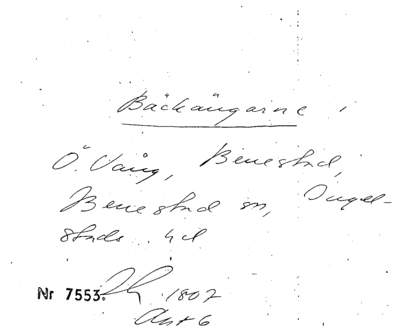 Bäckängarne,
Ö. Vång, Benestad,
Benestad sn, Ingel-
stads hd
Nr 7553. 1807
Akt 6